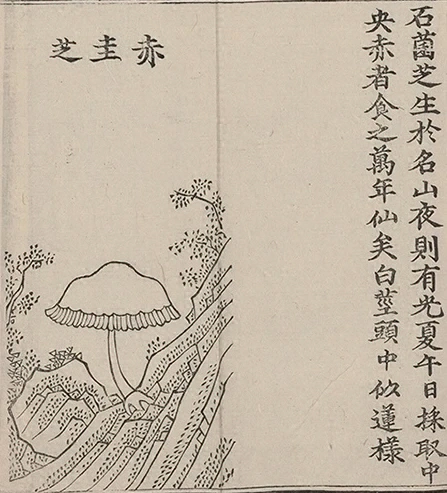 石菌芝生於名山夜則有光夏午日採取中
央赤者食之萬年仙矣白莖頭中似蓮樣
赤圭芝